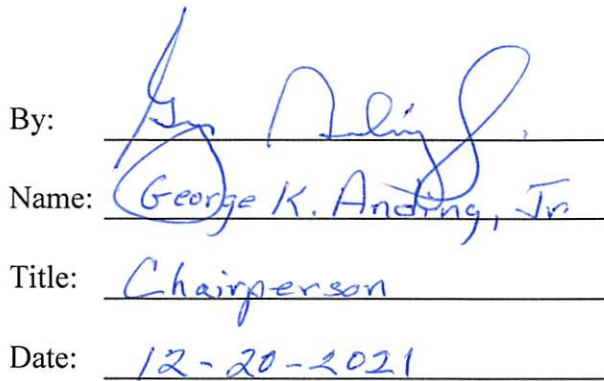 By:
Name: George K. Anding, Jr.
Title: Chairperson
Date: 12-20-2021